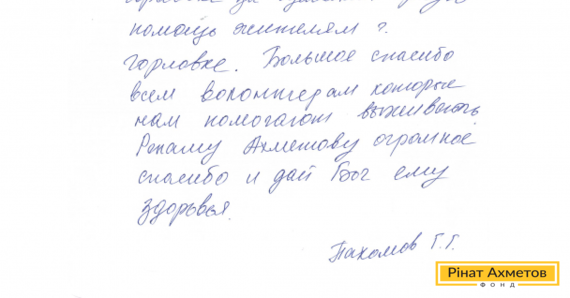 помощь жителям г.
Горловке. Большое спасибо
всем волонтерам которые
нам помогают выживать
Ренату Ахметову огромное
спасибо и дай Бог ему
здоровья.
Пахомов Г.Г.
Рінат Ахметов
ФОНД